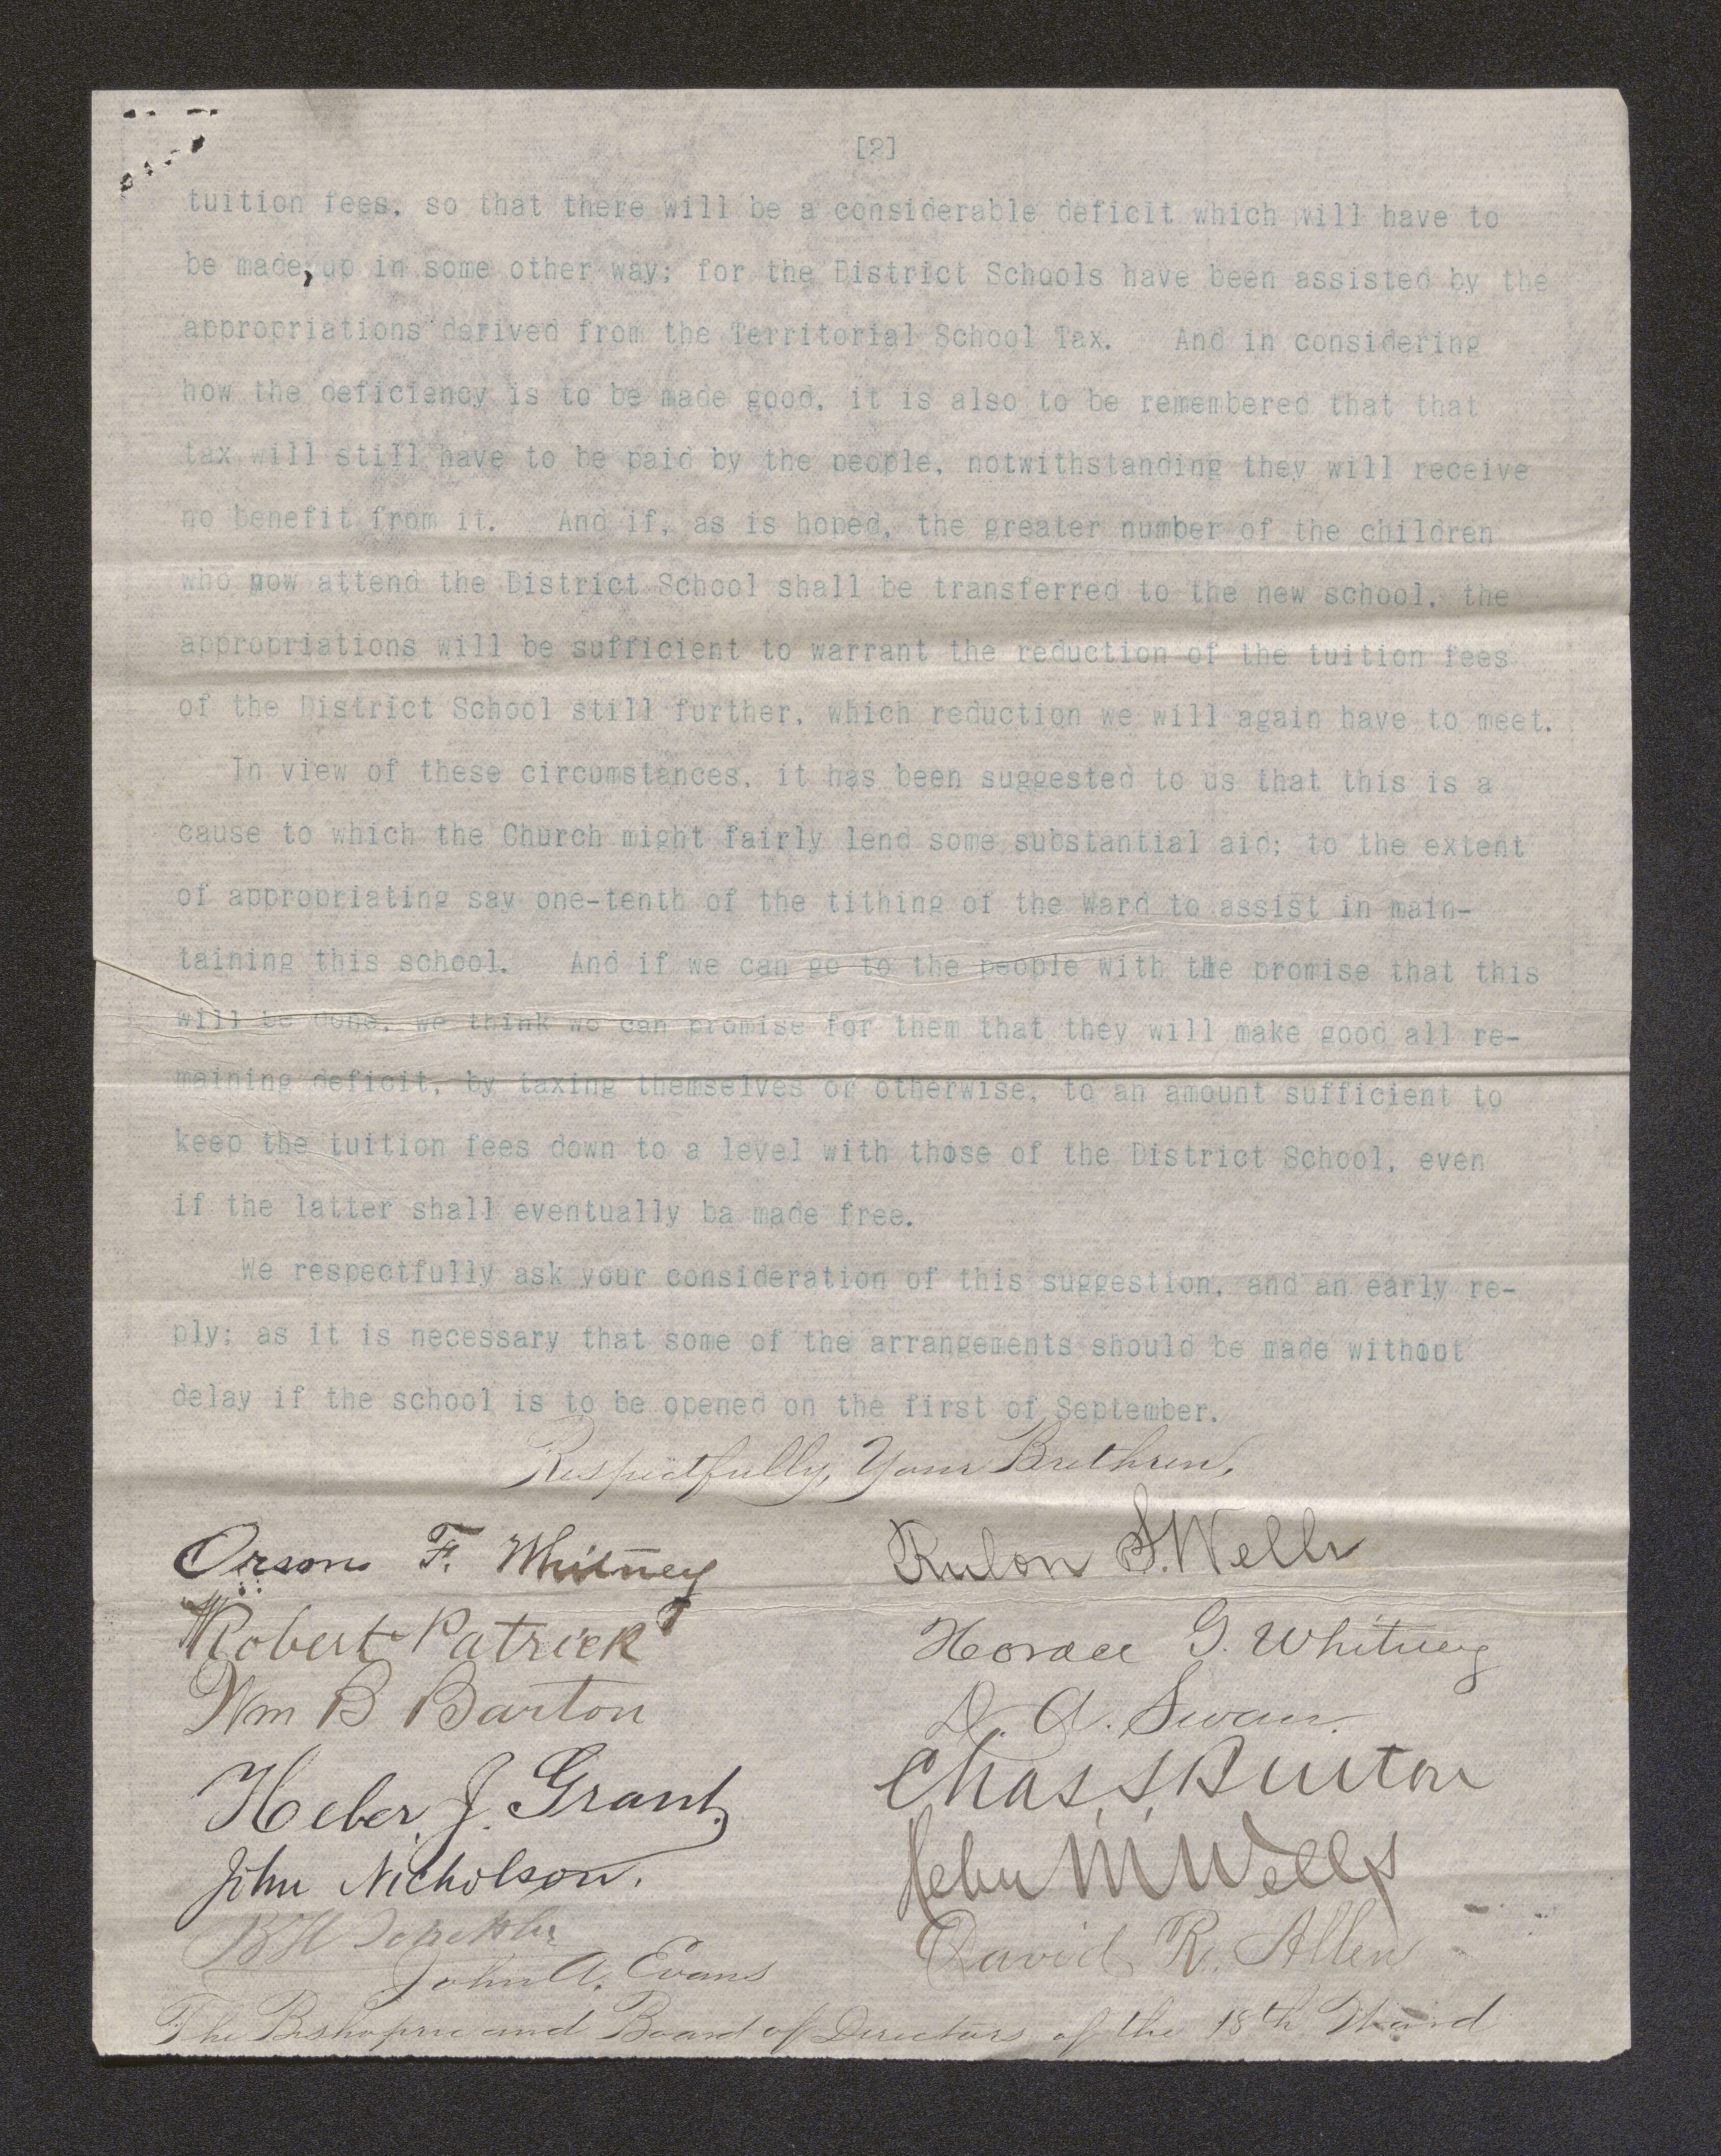 [2]
tuition fees, so that there will be a considerable deficit which will have to
be made, up in some other way; for the District Schools have been assisted by the
appropriations derived from the Territorial School Tax. And in considering
how the deficiency is to be made good, it is also to be remembered that that
tax will still have to be paid by the people, notwithstanding they will receive
no benefit from it. And if, as is hoped, the greater number of the children
who now attend the District School shall be transferred to the new school, the
appropriations will be sufficient to warrant the reduction of the tuition fees
of the District School still further, which reduction we will again have to meet.
In view of these circumstances, it has been suggested to us that this is a
cause to which the Church might fairly lend some substantial aid; to the extent
of appropriating say one-tenth of the tithing of the Ward to assist in main-
taining this school. And if we can go to the people with the promise that this
will be done, we think we can promise for them that they will make good all re-
maining deficit, by taxing themselves or otherwise, to an amount sufficient to
keep the tuition fees down to a level with those of the District School, even
if the latter shall eventually ba made free.
We respectfully ask your consideration of this suggestion, and an early re-
ply; as it is necessary that some of the arrangements should be made without
delay if the school is to be opened on the first of September.
Respectfully, Your Brethren,
Orson F. Whitney
Robert Patrick
Wm B Barton
Heber J. Grant
John Nicholson.
B H
John A. Evans
Rulon S. Wells
Horace G. Whitney
D. A. Swan.
Chas. S. Burton
Heber M Wells
David R. Allen
The Bishopric and Board of Directors of the 18th Ward